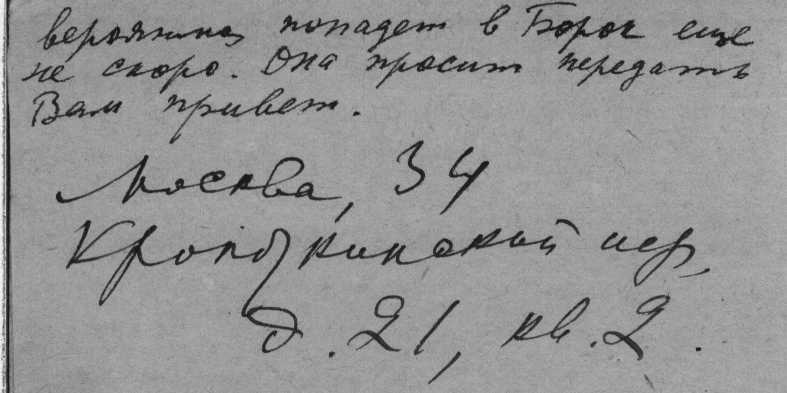 вероятно попадет в Борок еще
не скоро. Она просит передать
Вам привет.
Москва, 34
Кропоткинский пер,
д. 21, кв. 2.